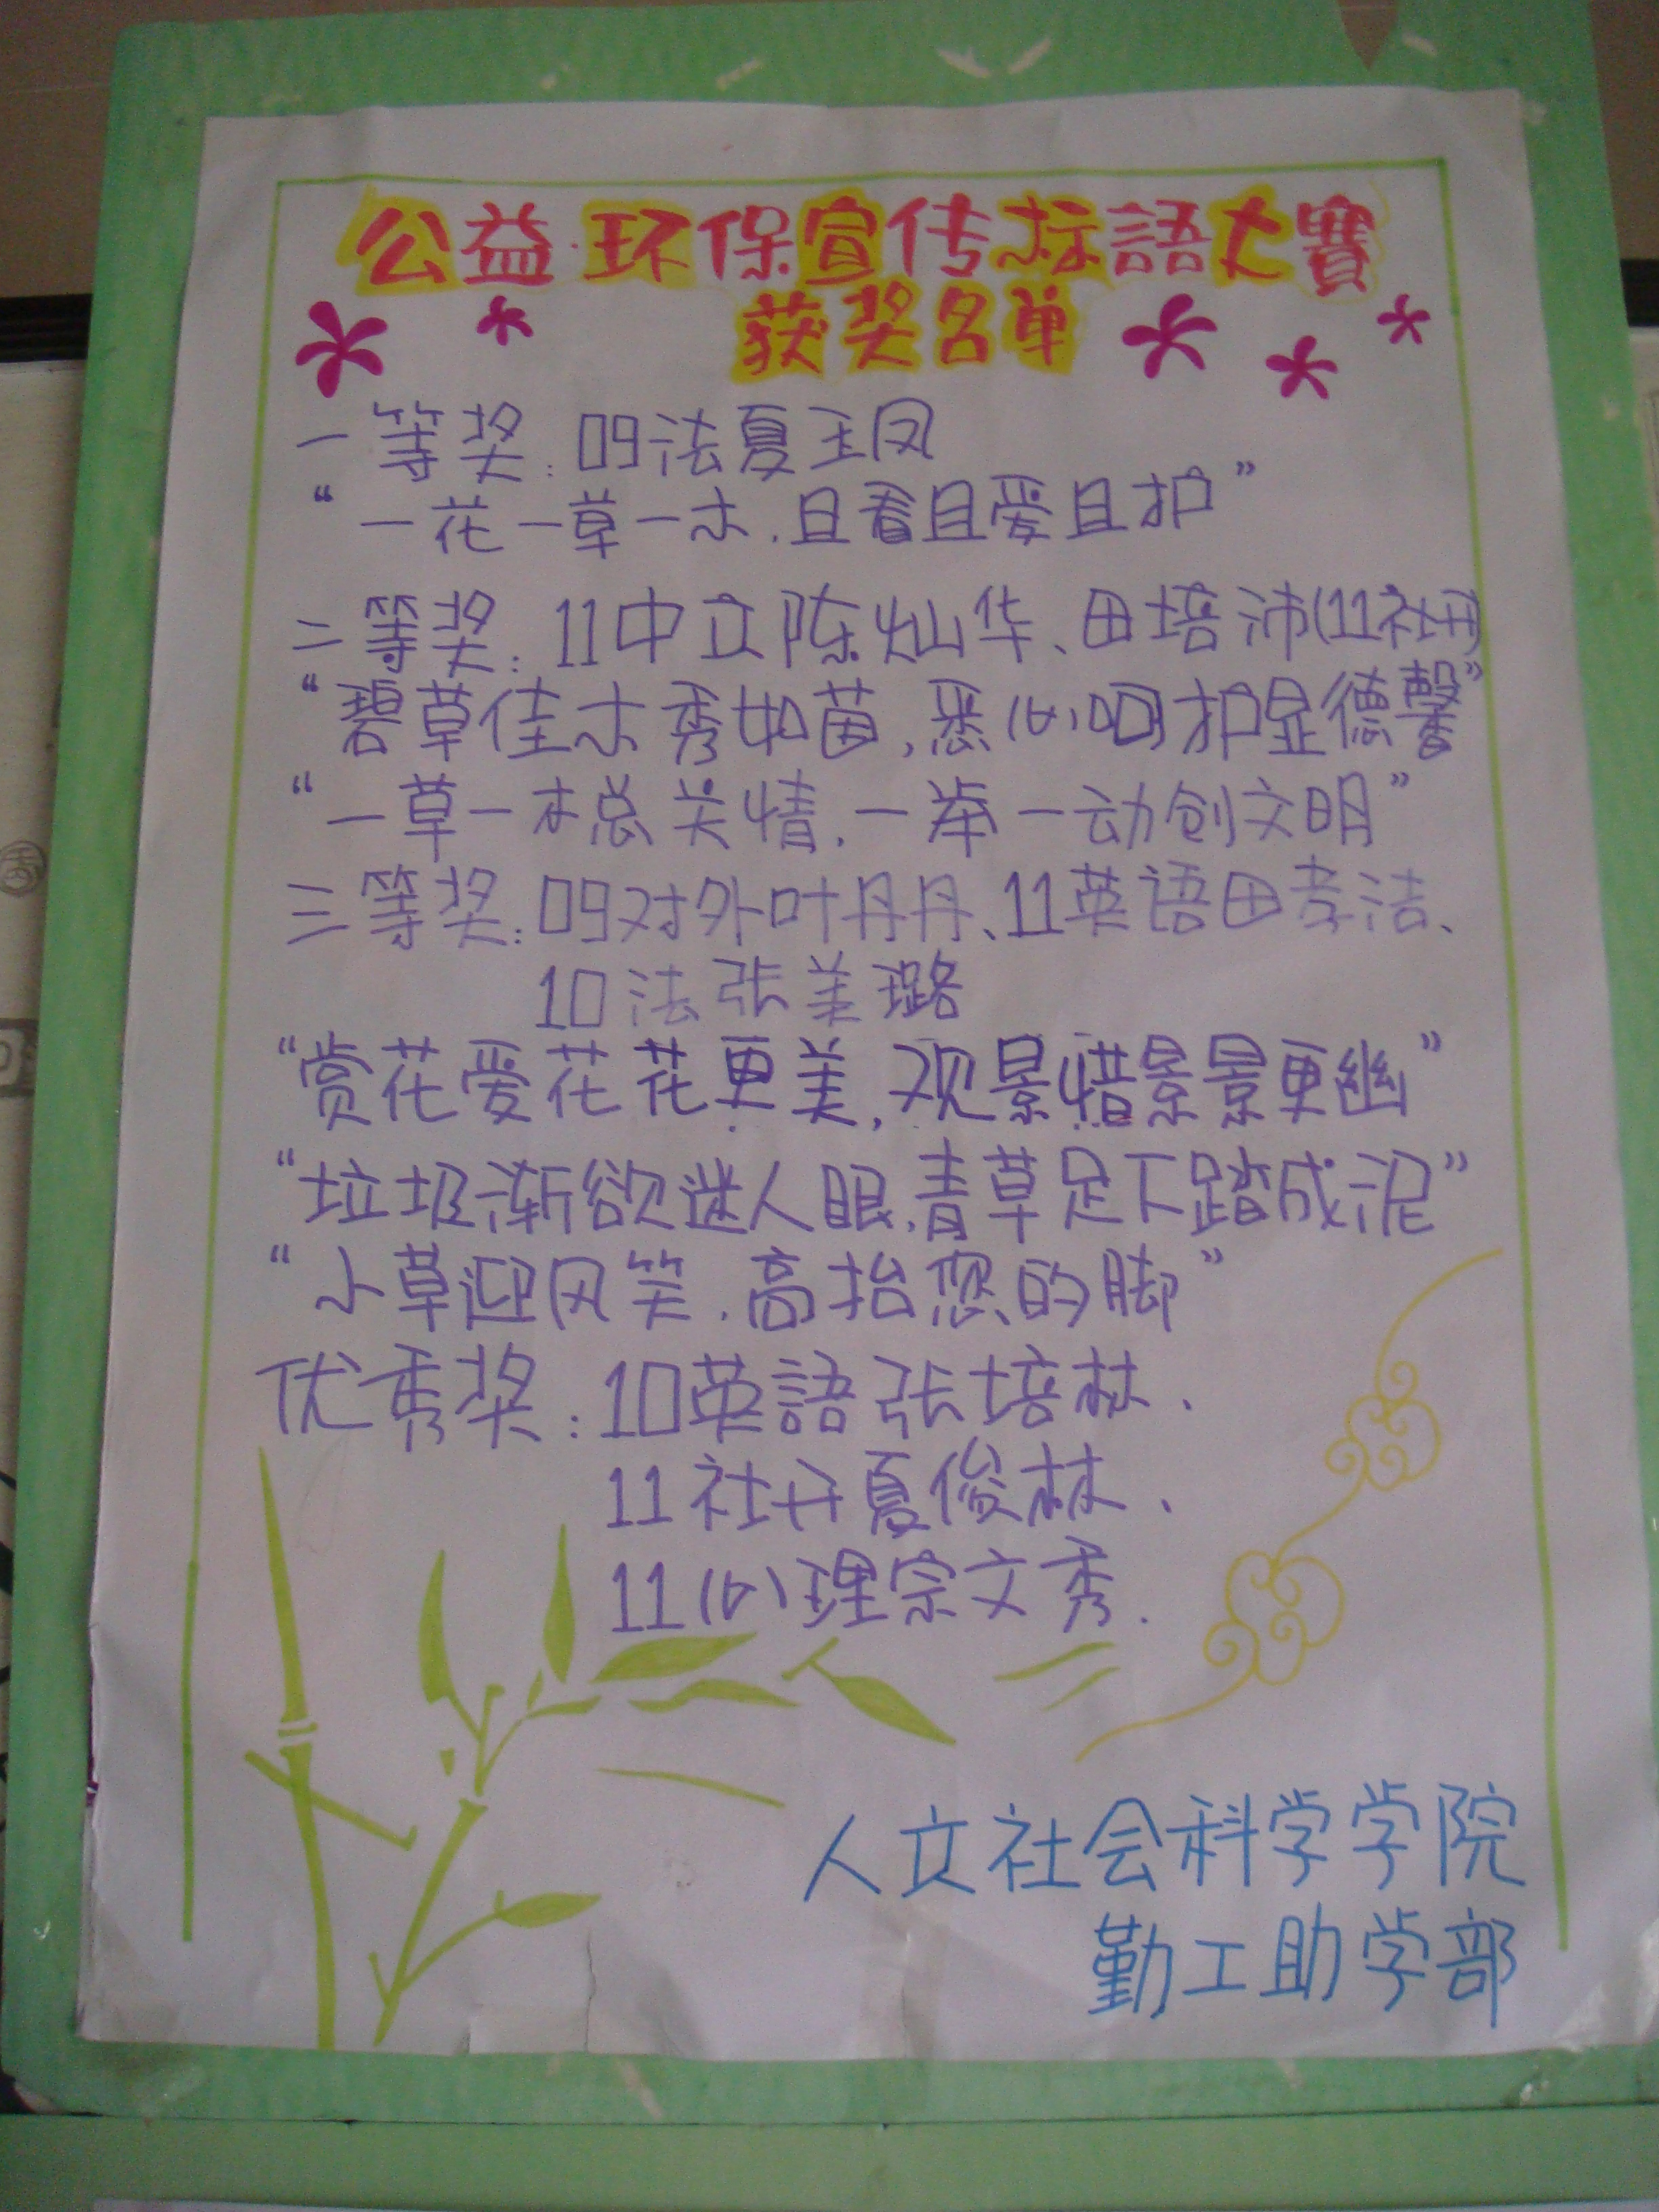 公益·环保宣传标語大賽
获奖名单
一等奖:09法夏玉凤
“一花一草一木,且看且爱且护”
二等奖:11中立陈灿华、田培沛(11社升)
“碧草佳木秀如茵,悉心呵护显德馨”
“一草一木总关情,一举一动创文明”
三等奖:09对外叶丹丹、11英语田孝洁、
10法张美璐
“赏花爱花花更美,观景惜景景更幽”
“垃圾渐欲迷人眼,青草足下踏成泥”
“小草迎风笑,高抬您的脚”
优秀奖:10英語张培林、
11社升夏俊林、
11心理宗文秀.
人文社会科学学院
勤工助学部